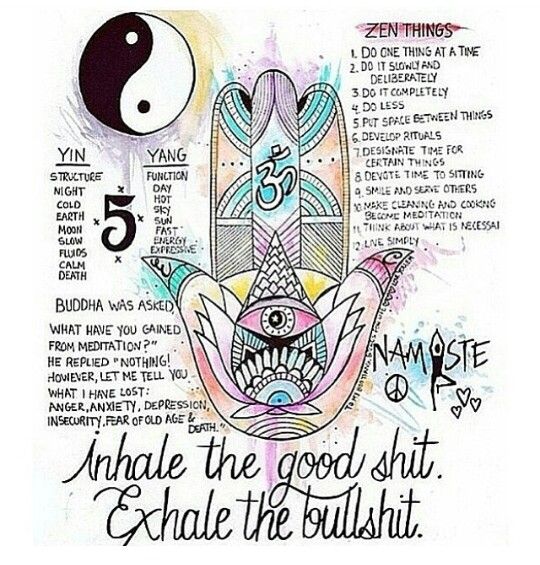 ZEN THINGS
1. DO ONE THING AT A TIME
2. DO IT SLOWLY AND
DELIBERATELY
3. DO IT COMPLETELY
4. DO LESS
5. PUT SPACE BETWEEN THINGS
6. DEVELOP RITUALS
7. DESIGNATE TIME FOR
CERTAIN THINGS
8. DEVOTE TIME TO SITTING
9. SMILE AND SERVE OTHERS
10. MAKE CLEANING AND COOKING
BECOME MEDITATION
11. THINK ABOUT WHAT IS NECESSAI
12. LIVE SIMPLY
YIN
STRUCTURE
NIGHT
COLD
EARTH
MOON
SLOW
FLUIDS
CALM
DEATH
5
YANG
FUNCTION
DAY
HOT
SKY
SUN
FAST
ENERGY
EXPRESSIVE
ॐ
BUDDHA WAS ASKED
WHAT HAVE YOU GAINED
FROM MEDITATION?"
HE REPLIED "NOTHING!
HOWEVER, LET ME TELL YOU
WHAT I HAVE LOST:
ANGER, ANXIETY, DEPRESSION,
INSECURITY, FEAR OF OLD AGE &
DEATH."
NAMASTE
Inhale the good shit.
Exhale the bullshit.